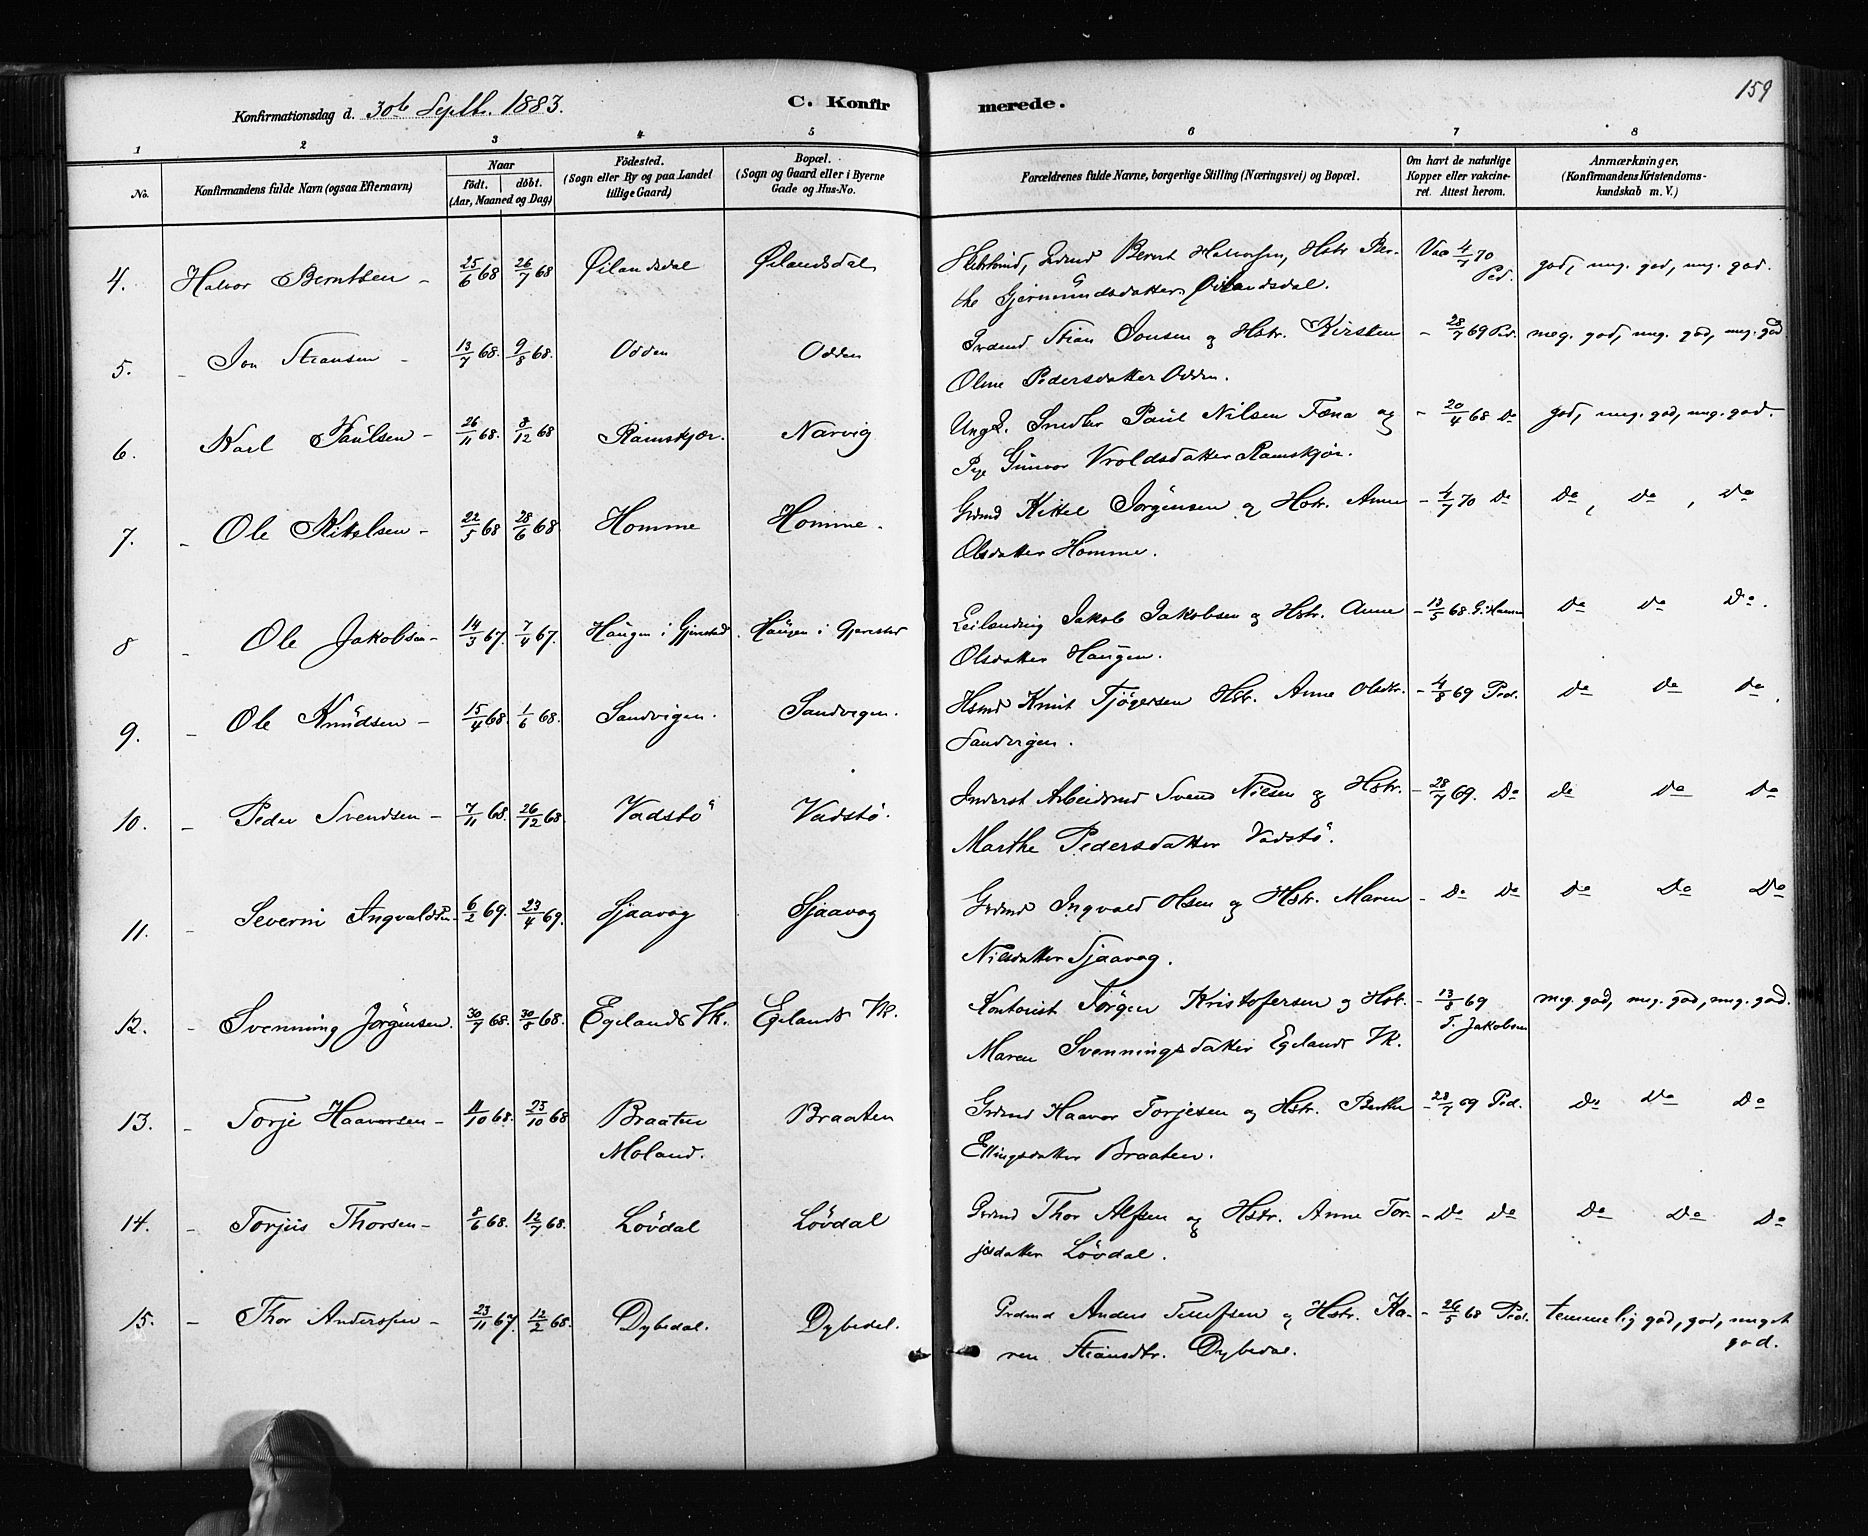 159
Konfirmationsdag d. 30te Septb. 1883. C. Konfir merede.
1 2 3 4 5 6 7 8
No. Konfirmandens fulde Navn (ogsaa Efternavn) Naar födt. döbt. (Aar, Maaned og Dag) Födested. (Sogn eller By og paa Landet tillige Gaard) Bopæl. (Sogn og Gaard eller i Byerne Gade og Hus-No. Forældrenes fulde Navne, borgerlige Stilling (Næringsvei) og Bopæl. Om havt de naturlige Kopper eller vakcineret. Attest herom. Anmærkninger, (Konfirmandens Kristendomskundskab m. V.)
4. Halvor Berntsen - 25/6 68 26/7 68 Øilandsdal Øilandsdal Grdmd Bernt Halvorsen, Hstr. Ber- Vac 4/7 70 god, meg. god, meg. god.
the Gjermundsdatter Øilandsdal. Ped.
5. - Jon Stiansen - 13/7 68. 9/8 68. Odden Odden Grdmd Stian Jonsen og Hstr. Kirsten - 28/7 69 Ped. meg. god, meg. god, meg. god
Oline Pedersdatter Odden.
6. Karl Paulsen - 26/11 68. 8/12 68 Ramskjær. Narvig Ungk. Smedkr Paul Nilsen Fæna og - 20/4 68 Do god, meg. god, meg. god.
Pige Gunvor Vroldsdatter Ramskjør.
7. - Ole Kittelsen - 22/5 68 28/6 68 Homme Homme. Grdmd Kittel Jörgensen og Hstr. Anne - 4/7 70 Do Do, Do, Do
Olsdatter Homme.
8 - Ole Jakobsen - 14/3 67. 7/4 67. Haugen i Gjerestad. Haugen i Gjerestad Leilænding Jakob Jakobsen og Hstr. Anne - 13/5 68 G. Hansen Do Do Do.
Olsdatter Haugen.
9. - Ole Knudsen - 15/4 68. 1/6 68. Sandvigen. Sandvigen. Hsmd Knut Tjögersen Hstr. Anne Olsdtr. - 4/8 69 Ped. Do Do Do
Sandvigen.
10. - Peder Svendsen - 7/11 68. 26/12 68 Vadstö Vadstö. Inderst Arbeidsmd Svend Nilsen og Hstr. - 28/7 69. Do Do Do Do
Marthe Pedersdatter Vadstö.
11. - Severin Ingvaldsen - 6/2 69. 23/4 69. Sjaavog Sjaavog Grdmd Ingvald Olsen og Hstr. Maren - Do Do Do Do Do
Nilsdatter Sjaavog.
12. - Svenning Jörgensen. 30/7 68. 30/8 68. Egelands Vk. Egelands Vk. Kontorist Jörgen Kristofersen og Hst. - 13/8 69 meg. god, meg. god, meg. god.
Maren Svenningsdatter Egelands Vk. T. Jakobsen
13. - Torje Haavorsen - 4/10 68. 25/10 68 Braaten Braaten Grdmd Haavor Torjesen og Hstr. Berthe - 28/7 69 Ped. Do Do Do
Moland. Ellingsdatter Braaten.
14. - Torjus Thorsen - 8/6 68. 12/7 68. Lövdal Lövdal Grdmd Thor Alfsen og Hstr. Anne Tor- - Do Do Do Do Do
jesdatter Lövdal.
15. - Thor Andersen - 23/11 67. 12/2 68. Dybedal. Dybedal. Grdmd Anders Tellefsen og Hstr. Ka- - 26/5 68 Ped. temmelig god, god, meget
ren Stiansdtr. Dybedal. god.